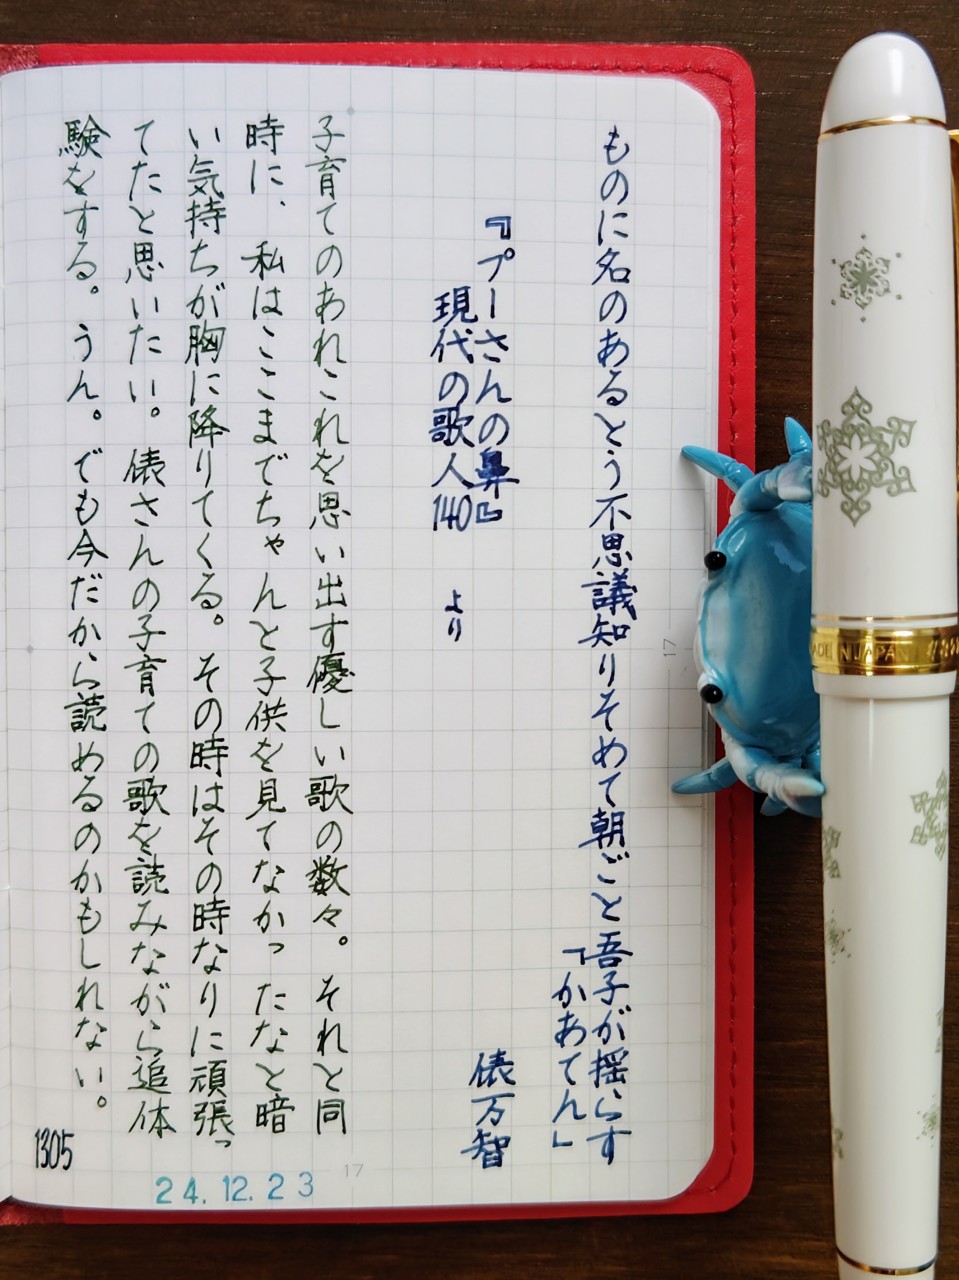 ものに名のあるとう不思議知りそめて朝ごと吾子が揺らす
「かあてん」
俵万智
『プーさんの鼻』
現代の歌人140 より
子育てのあれこれを思い出す優しい歌の数々。それと同
時に、私はここまでちゃんと子供を見てなかったなと暗
い気持ちが胸に降りてくる。その時はその時なりに頑張っ
てたと思いたい。俵さんの子育ての歌を読みながら追体
験をする。うん。でも今だから読めるのかもしれない。
1305
24.12.23
17
17
JAPAN